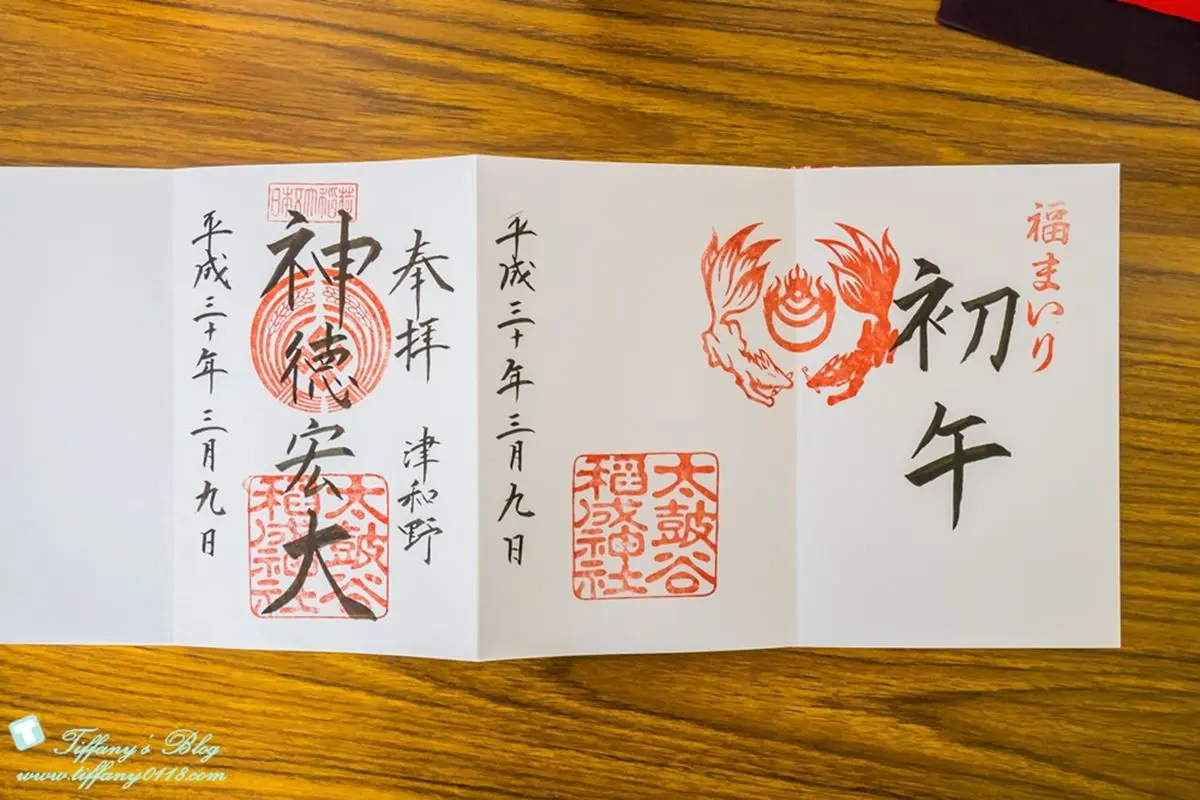 福まいり
初午
太鼓谷
稲成神社
平成三十年三月九日
奉拝 津和野
神徳宏大
太鼓谷
稲成神社
平成三十年三月九日
Tiffany's Blog
www.tiffany0118.com